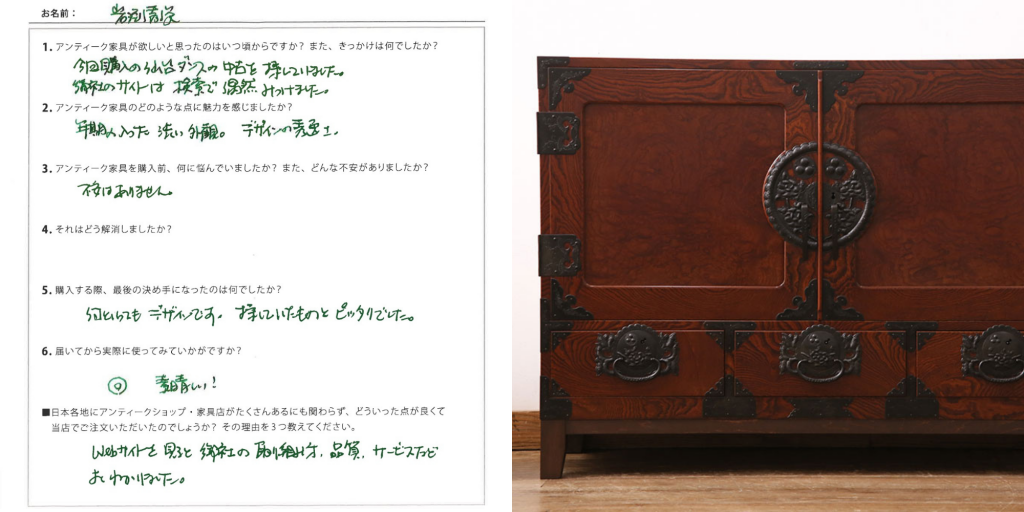 お名前： 岩渕清栄
1. アンティーク家具が欲しいと思ったのはいつ頃からですか？ また、きっかけは何でしたか？
今回購入の仙台ダンスの中古を探していました。
御社のサイトは 検索で偶然みつけました。
2. アンティーク家具のどのような点に魅力を感じましたか？
年期の入った 渋い外観。 デザインの
3. アンティーク家具を購入前、何に悩んでいましたか？ また、どんな不安がありましたか？
不安はありません。
4. それはどう解消しましたか？
5. 購入する際、最後の決め手になったのは何でしたか？
何といっても デザインです。 探していたものと ピッタリでした。
6. 届いてから実際に使ってみていかがですか？
◎ 素晴しい！
■日本各地にアンティークショップ・家具店がたくさんあるにも関わらず、どういった点が良くて
当店でご注文いただいたのでしょうか？ その理由を３つ教えてください。
Webサイトを見ると 御社の 取り組み方、品質、サービスなど
よくわかりました。